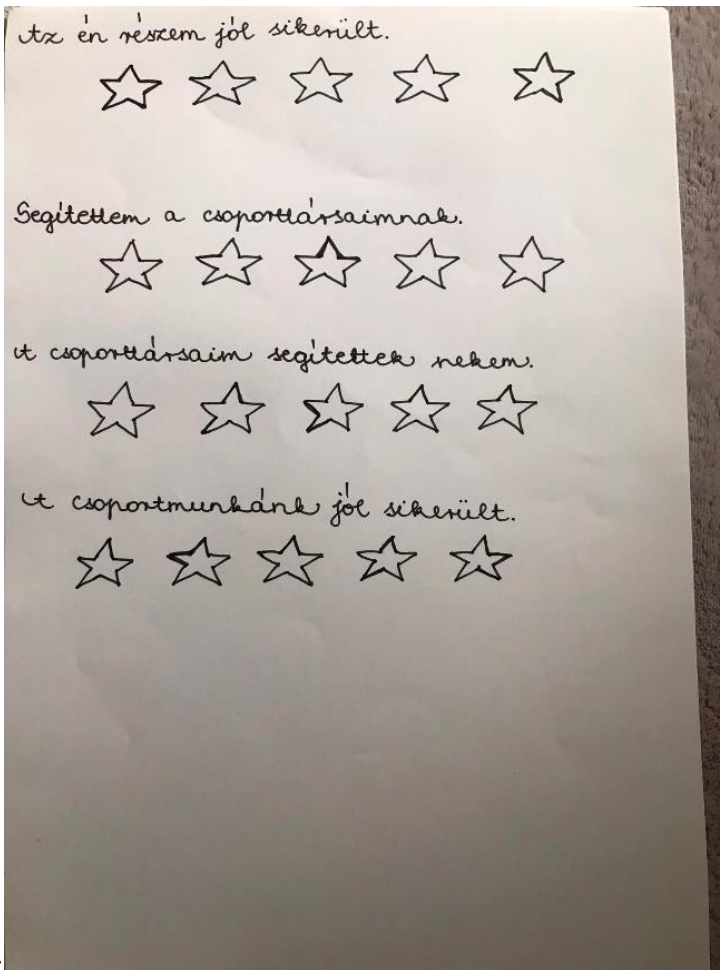 Az én részem jól sikerült.
Segítettem a csoporttársaimnak.
A csoporttársaim segítettek nekem.
A csoportmunkánk jól sikerült.